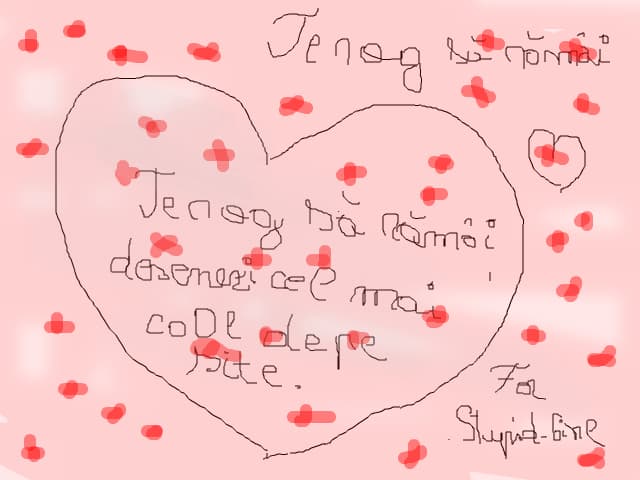 Te rog să rămâi
Te rog să rămâi
desenezi cel mai
cool de pe
site.
For
Stupid-Girl